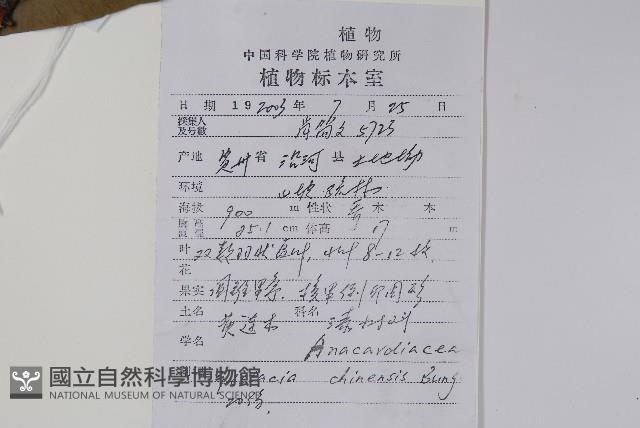 植物
中国科学院植物研究所
植物标本室
日期 19 2003 年 7 月 25 日
採集人
及号數 5723
产地 贵州 省 沿河 县 土地坳
环境 山坡疏林
海拔 900 m 性状 乔木 本
胸高
直徑 25.1 cm 体高 17 m
叶 羽状 小叶 8-12 枚
花
果实
土名 黄连木 科名 漆树科
学名 Anacardiacea
chinensis Bung
國立自然科學博物館
NATIONAL MUSEUM OF NATURAL SCIENCE